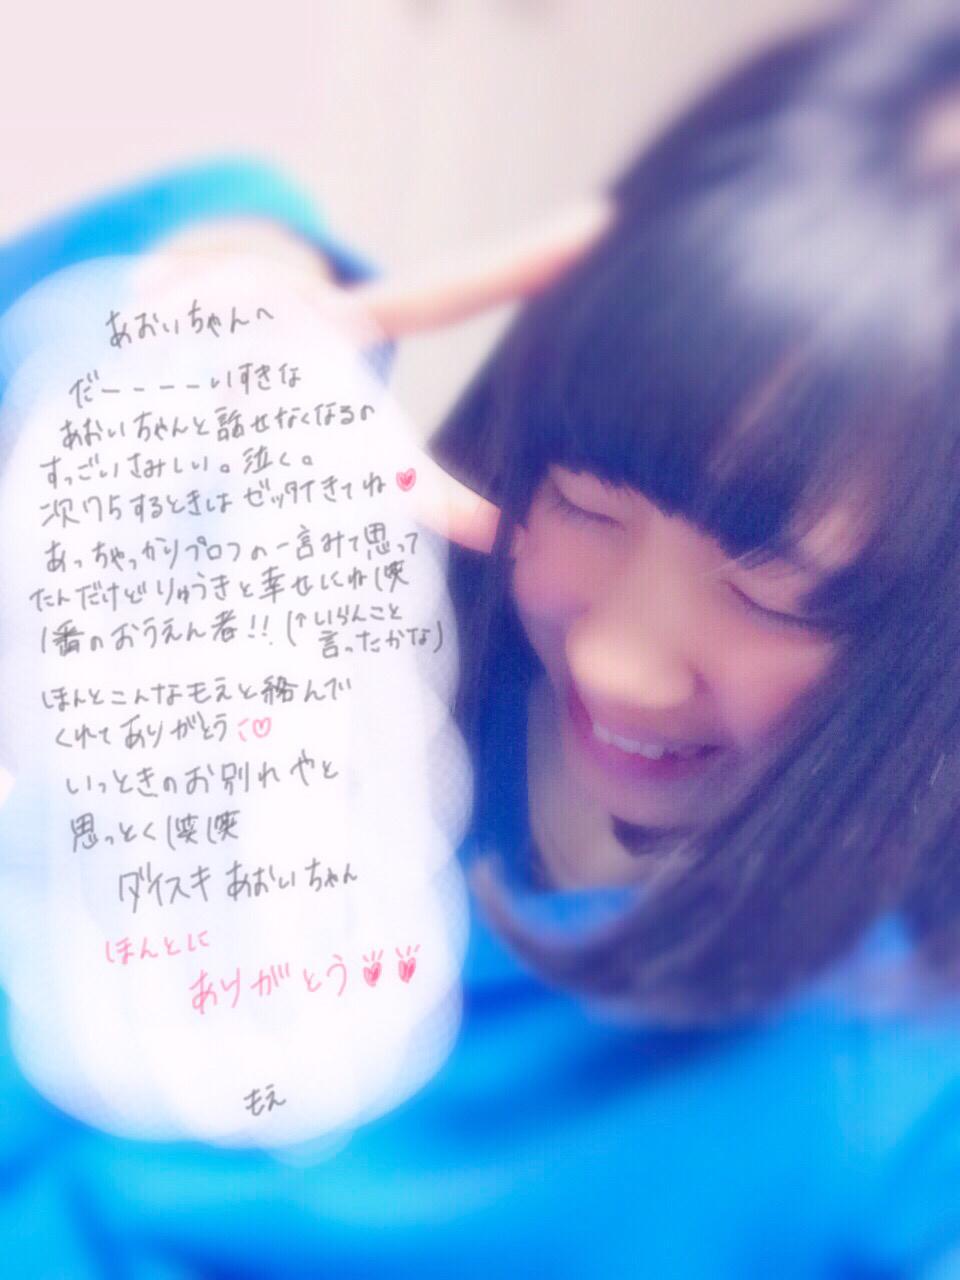 あおいちゃんへ
だーーーーいすきな
あおいちゃんと話せなくなるの
すっごいさみしい。泣く。
次フ5するときは ゼッタイきてね♥
あっちゃっかりプロフの一言みて思って
たんだけどりゅうきと幸せにね(笑
1番のおうえん者!! (↑いらんこと
言ったかな)
ほんとこんなもえと絡んで
くれてありがとう♡
いっときのお別れやと
思っとく(笑(笑
ダイスキ あおいちゃん
ほんとに
ありがとう♥♥
もえ